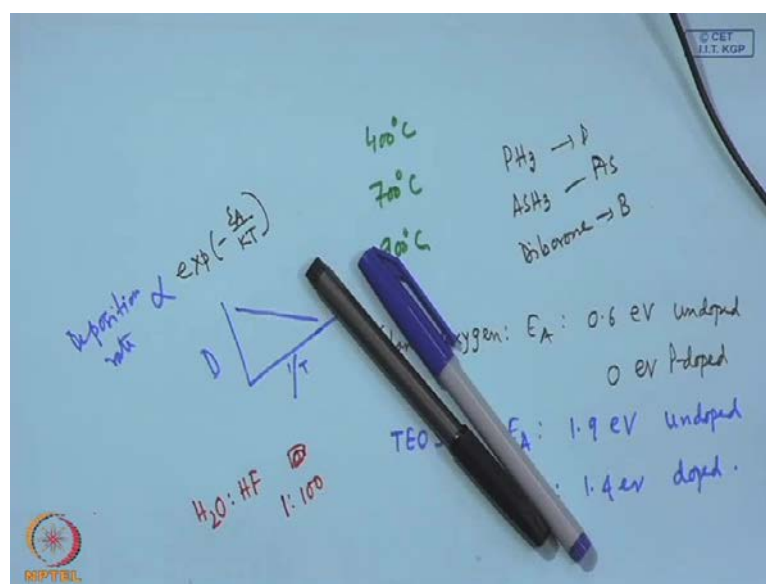 © CET
I.I.T. KGP
400°C
700°C
900°C
PH3 → P
ASH3 — AS
Diborone → B
Deposition rate ∝ exp(-EA/KT)
D
1/T
ygen: EA: 0.6 eV undoped
0 eV P-doped
TEO EA: 1.9 eV undoped
: 1.4 ev doped.
H2O: HF
1:100
NPTEL